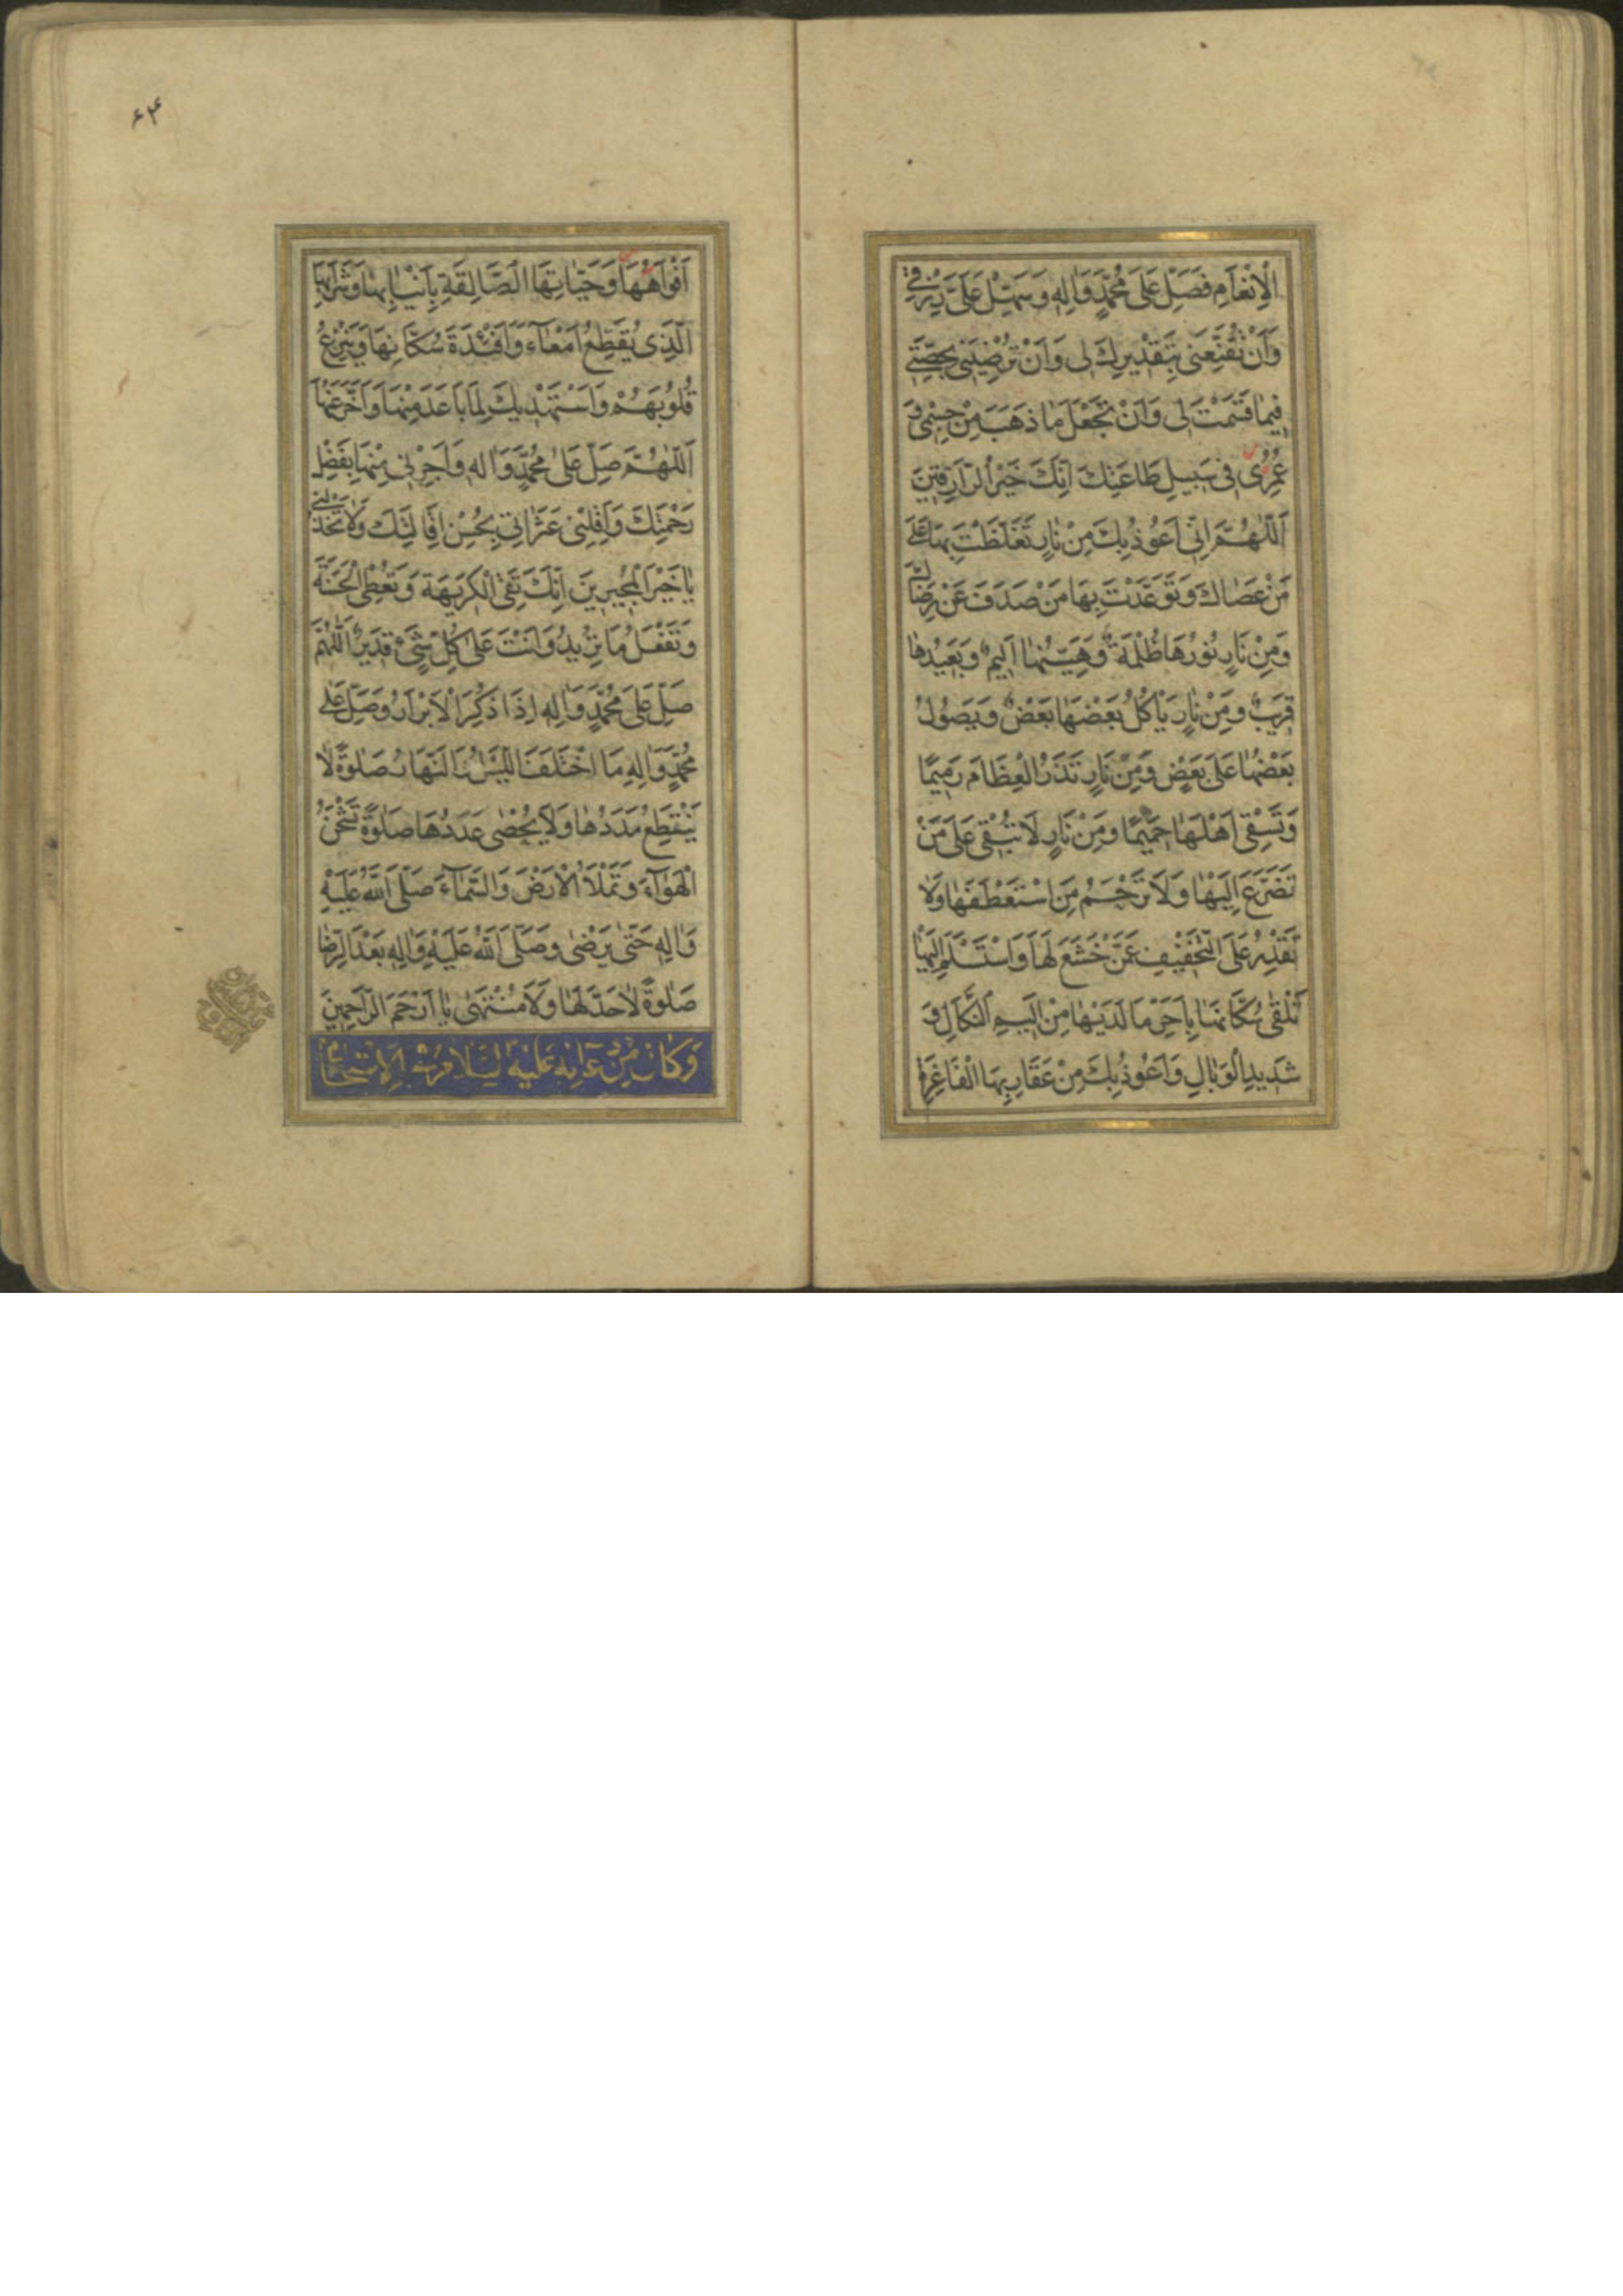 الْاِنْعَامِ فَصَلِّ عَلَىٰ مُحَمَّدٍ وَاٰلِهِ وَسَهِّلْ عَلَىَّ رِزْقِى
وَاَنْ تُقَنِّعَنِى بِتَقْدِيرِكَ لِى وَاَنْ تُرْضِيَنِى بِحِصَّتِى
فِيمَا قَسَمْتَ لِى وَاَنْ تَجْعَلَ مَا ذَهَبَ مِنْ جِسْمِى وَ
عُمُرِى فِى سَبِيلِ طَاعَتِكَ اِنَّكَ خَيْرُ الرَّازِقِينَ
اَللّٰهُمَّ اِنِّى اَعُوذُ بِكَ مِنْ نَارٍ تَغَلَّظْتَ بِهَا عَلَىٰ
مَنْ عَصَاكَ وَتَوَعَّدْتَ بِهَا مَنْ صَدَفَ عَنْ رِضَاكَ
وَمِنْ نَارٍ نُورُهَا ظُلْمَةٌ وَهَيِّنُهَا اَلِيمٌ وَبَعِيدُهَا
قَرِيبٌ وَمِنْ نَارٍ يَاْكُلُ بَعْضَهَا بَعْضٌ وَيَصُولُ
بَعْضُهَا عَلَىٰ بَعْضٍ وَمِنْ نَارٍ تَذَرُ الْعِظَامَ رَمِيمًا
وَتَسْقِى اَهْلَهَا حَمِيمًا وَمِنْ نَارٍ لَا تُبْقِى عَلَىٰ مَنْ
تَضَرَّعَ اِلَيْهَا وَلَا تَرْحَمُ مَنِ اسْتَعْطَفَهَا وَلَا
تَقْدِرُ عَلَى التَّخْفِيفِ عَمَّنْ خَشَعَ لَهَا وَاسْتَسْلَمَ اِلَيْهَا
تَلْقَىٰ سُكَّانَهَا بِاَحَرِّ مَا لَدَيْهَا مِنْ اَلِيمِ النَّكَالِ وَ
شَدِيدِ الْوَبَالِ وَاَعُوذُ بِكَ مِنْ عَقَارِبِهَا الْفَاغِرَةِ
۶۴
اَفْوَاهُهَا وَحَيَّاتِهَا الصَّالِقَةِ بِاَنْيَابِهَا وَشَرَابِهَا
الَّذِى يُقَطِّعُ اَمْعَاءَ وَاَفْئِدَةَ سُكَّانِهَا وَيَنْزِعُ
قُلُوبَهُمْ وَاَسْتَهْدِيكَ لِمَا بَاعَدَ مِنْهَا وَاَخَّرَ عَنْهَا
اَللّٰهُمَّ صَلِّ عَلَىٰ مُحَمَّدٍ وَاٰلِهِ وَاَجِرْنِى مِنْهَا بِفَضْلِ
رَحْمَتِكَ وَاَقِلْنِى عَثَرَاتِى بِحُسْنِ اِقَالَتِكَ وَلَا تَخْذُلْنِى
يَا خَيْرَ الْمُجِيرِينَ اِنَّكَ تَقِى الْكَرِيهَةَ وَتُعْطِى الْحَسَنَةَ
وَتَفْعَلُ مَا تُرِيدُ وَاَنْتَ عَلَىٰ كُلِّ شَىْءٍ قَدِيرٌ اَللّٰهُمَّ
صَلِّ عَلَىٰ مُحَمَّدٍ وَاٰلِهِ اِذَا ذُكِرَ الْاَبْرَارُ وَصَلِّ عَلَىٰ
مُحَمَّدٍ وَاٰلِهِ مَا اخْتَلَفَ اللَّيْلُ وَالنَّهَارُ صَلٰوةً لَا
يَنْقَطِعُ مَدَدُهَا وَلَا يُحْصَىٰ عَدَدُهَا صَلٰوةً تَشْحَنُ
الْهَوَاءَ وَتَمْلَاُ الْاَرْضَ وَالسَّمَاءَ صَلَّى اللّٰهُ عَلَيْهِ
وَاٰلِهِ حَتَّىٰ يَرْضَىٰ وَصَلَّى اللّٰهُ عَلَيْهِ وَاٰلِهِ بَعْدَ الرِّضَا
صَلٰوةً لَا حَدَّ لَهَا وَلَا مُنْتَهَىٰ يَا اَرْحَمَ الرَّاحِمِينَ
وَكَانَ مِنْ دُعَائِهِ عَلَيْهِ السَّلَامُ فِى الْاِسْتِخَارَةِ